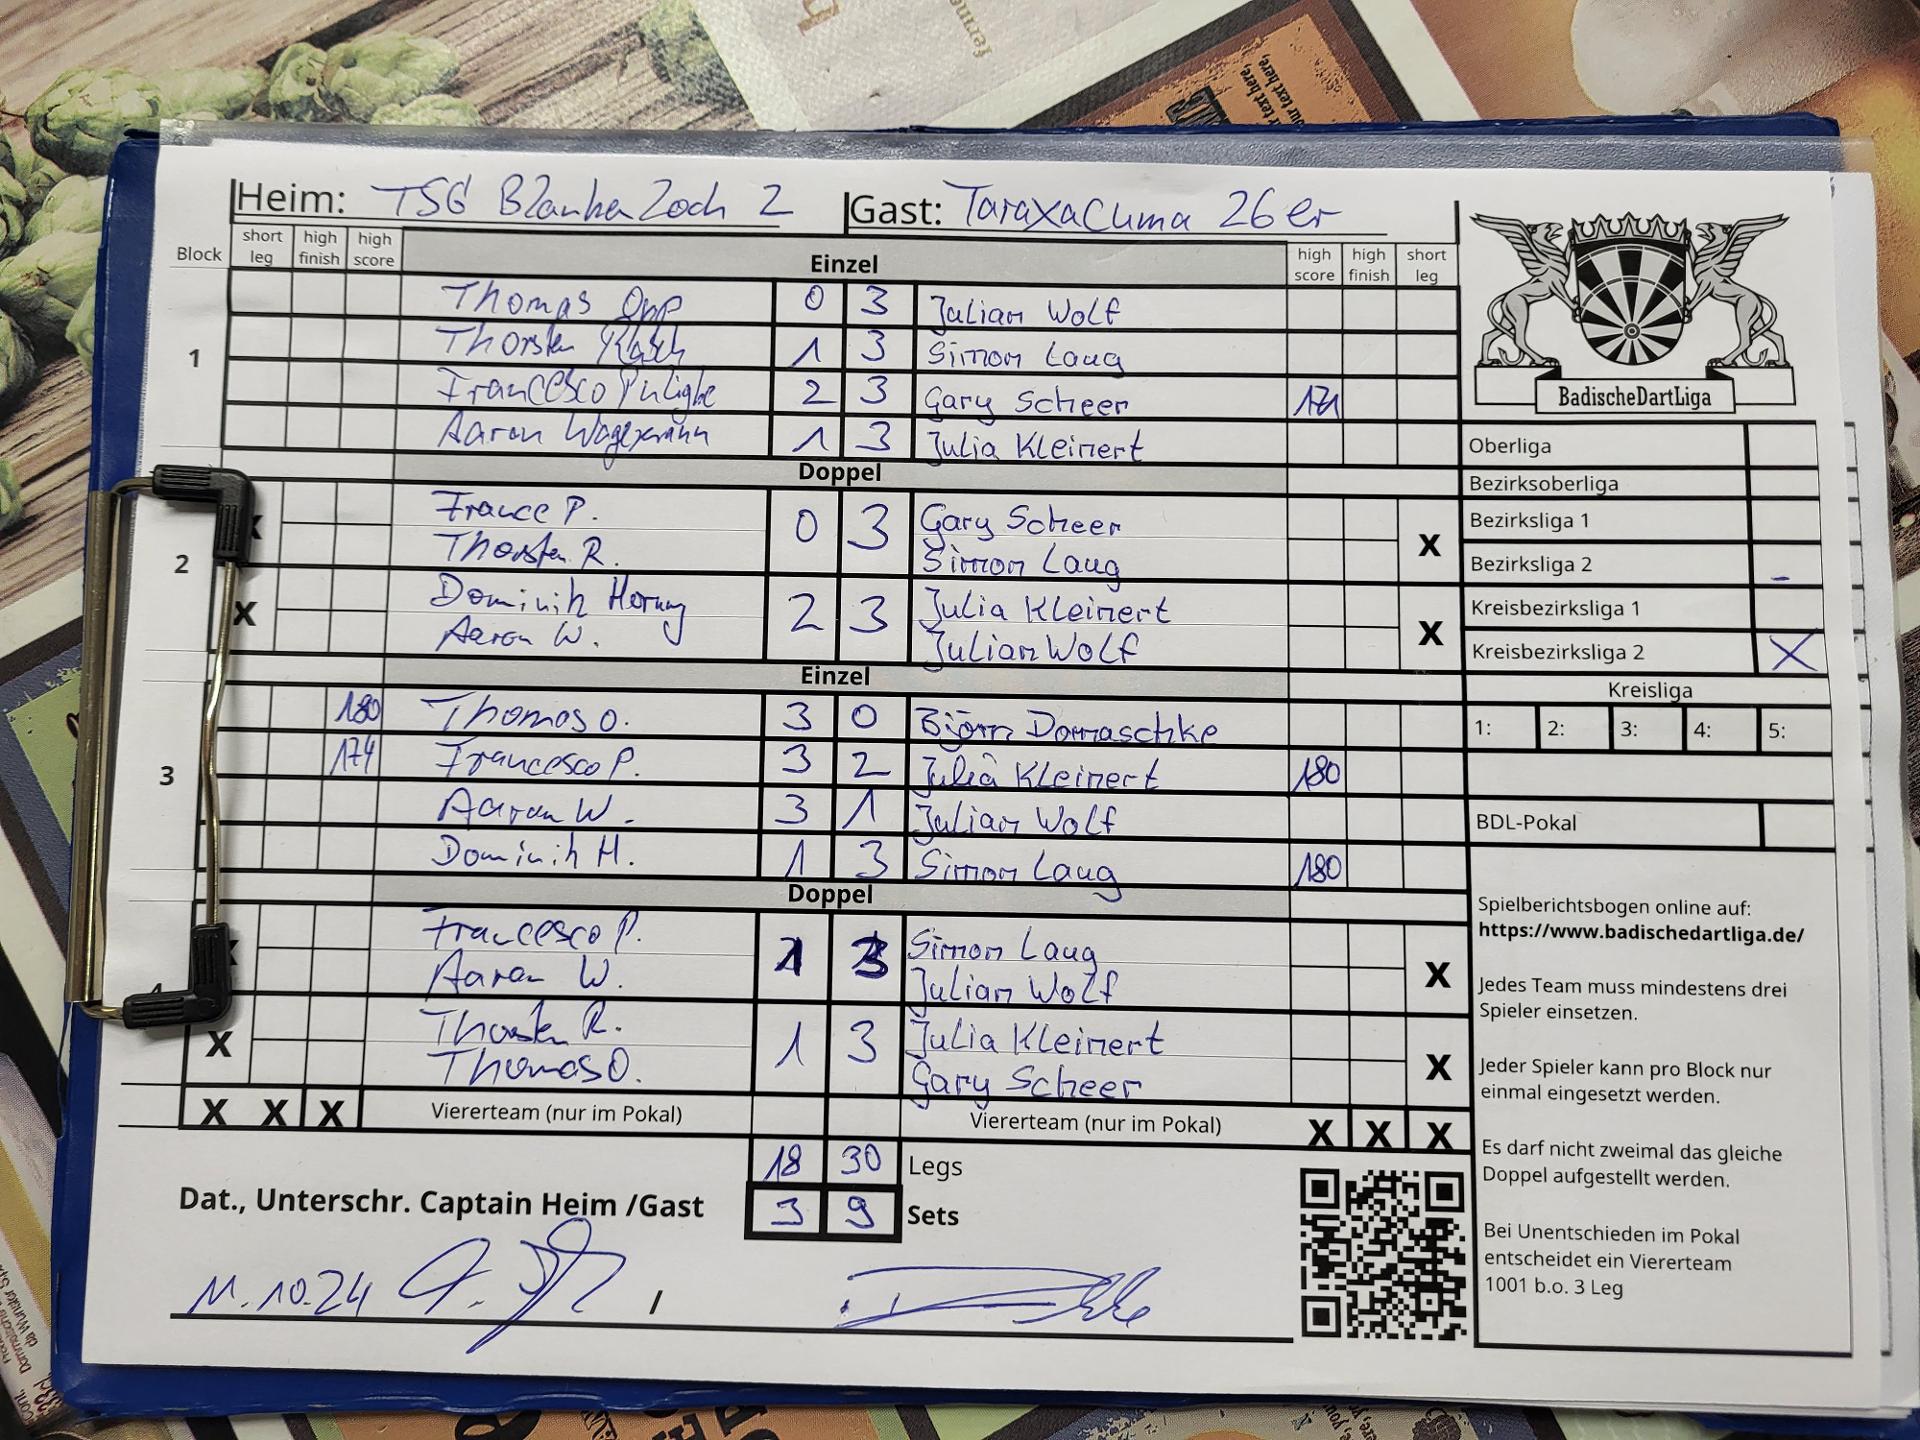 Heim: TSG BlankenLoch 2 Gast: Taraxacuma 26er
Block short leg high finish high score Einzel high score high finish short leg
1
Thomas Opp 0 3 Julian Wolf
Thorsten 1 3 Simon Laug
Francesco 2 3 Gary Scheer 171
Aaron Wagenmann 1 3 Julia Kleinert
Doppel
2
France P. 0 3 Gary Scheer X
Thorsten R. Simon Laug
X Dominik Hornung 2 3 Julia Kleinert X
Aaron W. Julian Wolf
Einzel
3
180 Thomas O. 3 0 Björn Domaschke
174 Francesco P. 3 2 Julia Kleinert 180
Aaron W. 3 1 Julian Wolf
Dominik H. 1 3 Simon Laug 180
Doppel
4
X Francesco P. 1 3 Simon Laug X
Aaron W. Julian Wolf
X Thorsten R. 1 3 Julia Kleinert X
Thomas O. Gary Scheer
X X X Viererteam (nur im Pokal) Viererteam (nur im Pokal) X X X
18 30 Legs
3 9 Sets
Dat., Unterschr. Captain Heim /Gast
11.10.24 /
BadischeDartLiga
Oberliga
Bezirksoberliga
Bezirksliga 1
Bezirksliga 2
Kreisbezirksliga 1
Kreisbezirksliga 2 X
Kreisliga
1: 2: 3: 4: 5:
BDL-Pokal
Spielberichtsbogen online auf:
https://www.badischedartliga.de/
Jedes Team muss mindestens drei
Spieler einsetzen.
Jeder Spieler kann pro Block nur
einmal eingesetzt werden.
Es darf nicht zweimal das gleiche
Doppel aufgestellt werden.
Bei Unentschieden im Pokal
entscheidet ein Viererteam
1001 b.o. 3 Leg